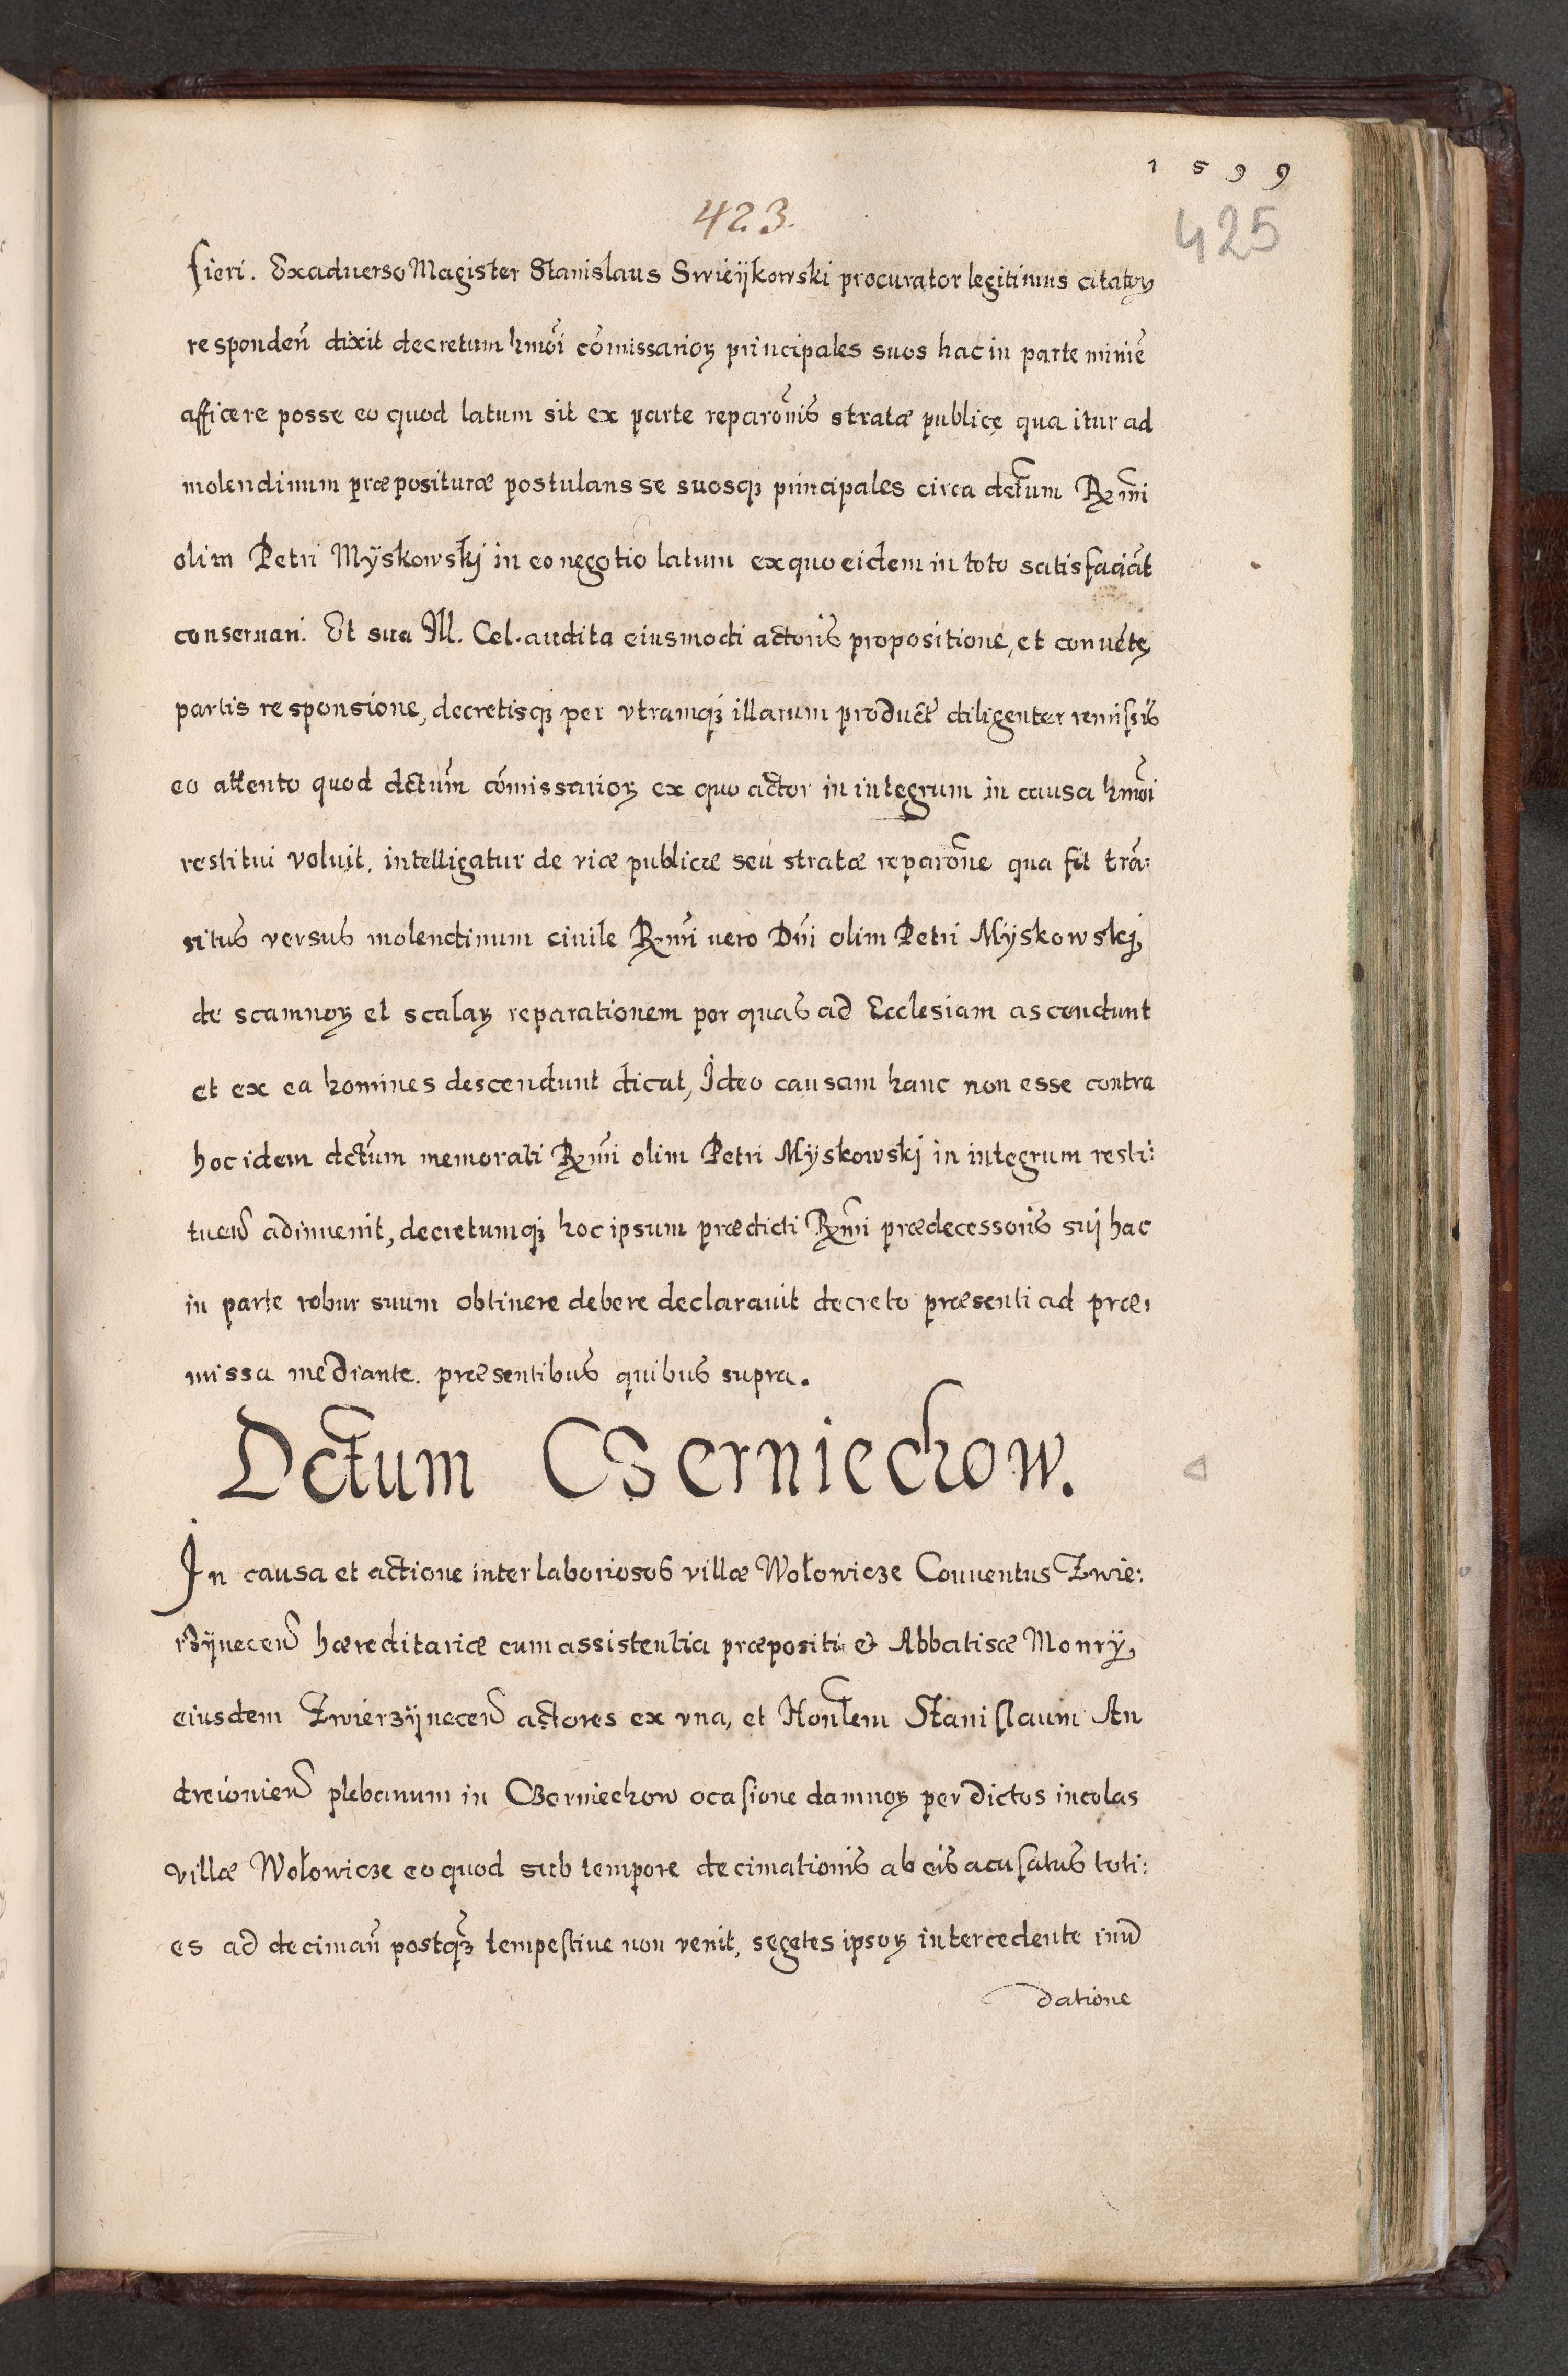 1 5 9 9
423.
425
fieri. Exaduerso Magister Stanislaus Swieÿkowski procurator legitimus citatoꝝ
responden̄ dixit decretum hmōi cōmissarioꝝ principales suos hac in parte minie͂
afficere posse eo quod latum sit ex parte reparōnis stratæ publicę qua itur ad
molendinum præposituræ postulans se suosqꝫ principales circa dctum Rx̄mi
olim Petri Mÿskowskj in eo negotio latum ex quo eidem in toto satisfaciāt
conseruari. Et sua Ill. Cel. audita eiusmodi actoris propositione, et conuētę
partis responsione, decretisqꝫ per vtramqꝫ illarum product̄ diligenter remissis
eo attento quod dctūm cōmissarioꝝ ex quo actor in integrum in causa hmōi
restitui voluit. intelligatur de viæ publicæ seu stratæ reparōne qua fit trā:
situs versus molendinum ciuile Rx̄mi vero Dn̄i olim Petri Mÿskowskj,
de scamnoꝝ et scalaꝝ reparationem per quas ad Ecclesiam ascendunt
et ex ea homines descendunt dicat, Ideo causam hanc non esse contra
hoc idem dctūm memorati Rx̄mi olim Petri Mÿskowskj in integrum resti:
tuen̄ adinuenit, decretumqꝫ hoc ipsum prædicti Rx̄mi prædecessoris suj hac
in parte robur suum obtinere debere declarauit decreto præsenti ad præ:
missa mediante. præsentibus quibus supra.
Dctum Czerniechow.
In causa et actione inter laboriosos villæ Wołowicze Conuentus Zwie:
rzÿnecen̄ hæreditariæ cum assistentia præpositi & Abbatisæ Monrÿ,
eiusdem Zwierzÿnecen̄ actores ex vna, et Honlem Stanislaum An
dreiouien̄ plebanum in Czerniechow ocasione damnoꝝ per dictos incolas
villæ Wołowicze eo quod sub tempore decimationis ab eis acusatus toti:
es ad deciman̄ postqꝫ tempestiue non venit, segetes ipsoꝝ intercedente inū
datione